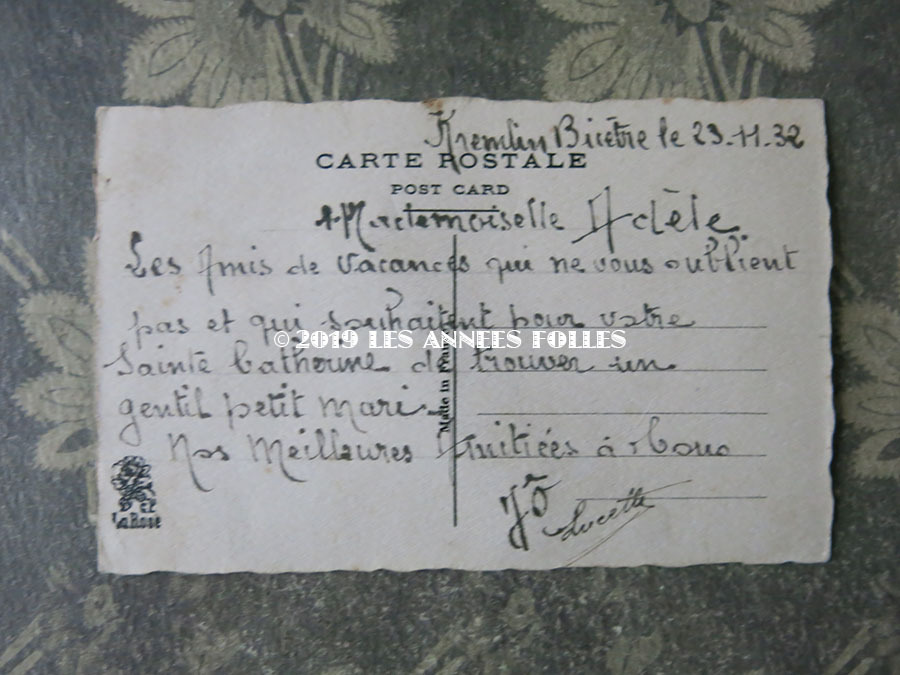 Kremlin Bicêtre le 23-11-32
CARTE POSTALE
POST CARD
Mademoiselle Adèle
Les Amis de Vacances qui ne vous oublient
pas et qui souhaitent pour votre
© 2019 LES ANNEES FOLLES
Sainte Catherine de trouver un
gentil petit mari.
Nos Meilleures Amitiées à Vous
Made in France
Jô
Lucette
La Rose